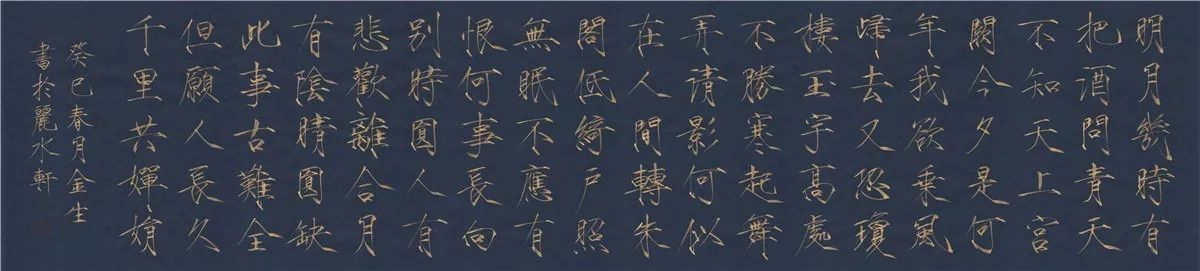 明月幾時有
把酒問青天
不知天上宮
闕今夕是何
年我欲乘風
歸去又恐瓊
樓玉宇高處
不勝寒起舞
弄清影何似
在人間轉朱
閣低綺戶照
無眠不應有
恨何事長向
別時圓人有
悲歡離合月
有陰晴圓缺
此事古難全
但願人長久
千里共嬋娟
癸巳春月金生
書於麗水軒